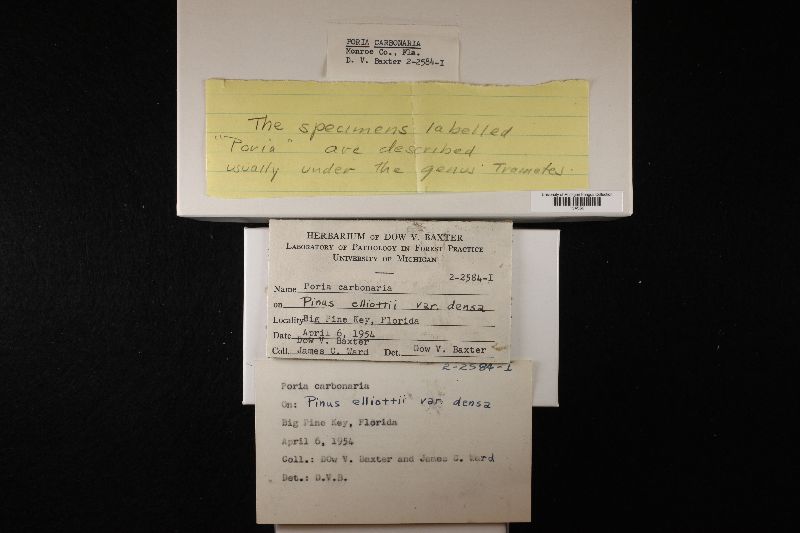 PORIA CARBONARIA
Monroe Co., Fla.
D. V. Baxter 2-2584-I
The specimens labelled
"Poria" are described
usually under the genus Trametes.
University of Michigan Fungus Collection
HERBARIUM OF DOW V. BAXTER
LABORATORY OF PATHOLOGY IN FOREST PRACTICE
UNIVERSITY OF MICHIGAN
2-2584-I
Name Poria carbonaria
on Pinus elliottii var. densa
Locality Big Pine Key, Florida
Date April 6, 1954
Dow V. Baxter
Coll. James C. Ward Det. Dow V. Baxter
2-2584-I
Poria carbonaria
On: Pinus elliottii var. densa
Big Pine Key, Florida
April 6, 1954
Coll.: DOw V. Baxter and James C. Ward
Det.: D.V.B.